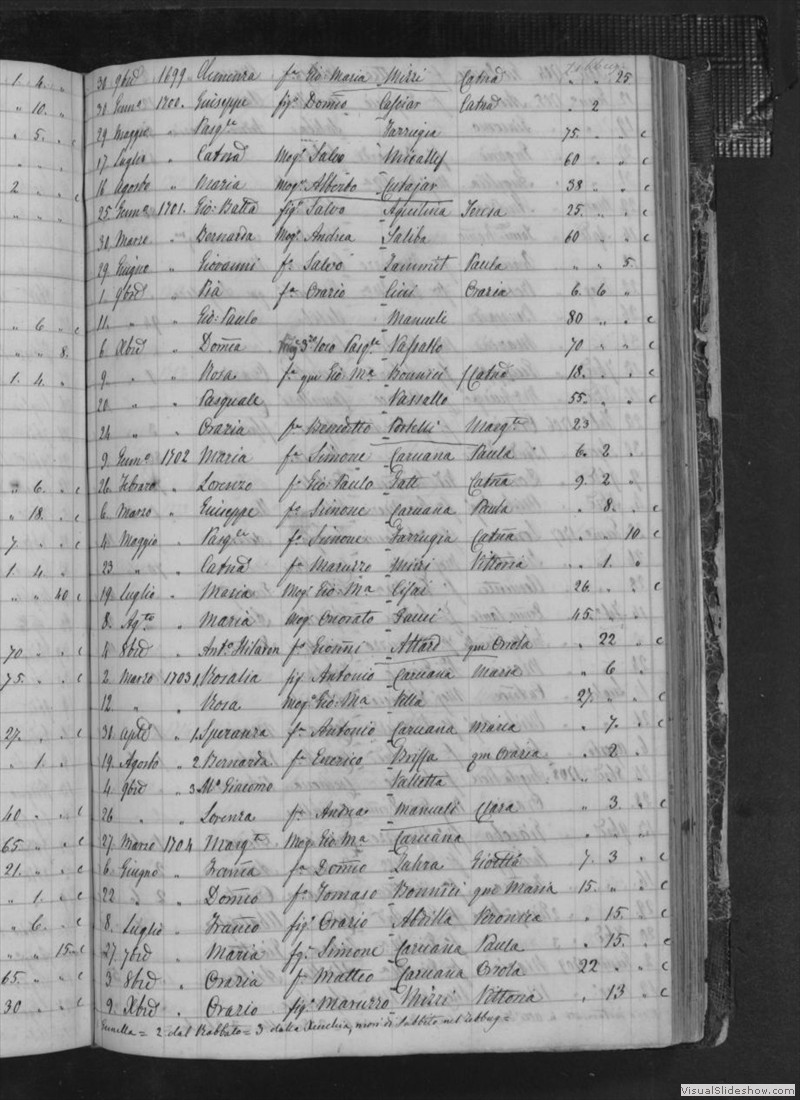 30 9bre 1699 Clemenza fa Gio Maria Mizzi Catna " " 25
31 Genno 1700. Giuseppe figo Domco Casciar Catna " 2
29 Maggio " Pasqle Farrugia 75 " " c
17 Luglio " Catna Moge Salvo Micallef 60 " " c
16 Agosto " Maria moge Alberto Cutajar 38 " " c
25 Genno 1701. Gio: Batta figo Salvo Aquilina Teresa 25. " " c
30 Marzo " Bernarda Moge Andrea Saliba 60 " " c
29 Giugno " Giovanni fo Salvo Zammit Paula " " 5.
1. 9bre " Pia fa Orazio Cini Grazia 6. 6 "
11. " " Gio: Paulo Manueli 80 " " c
6 Xbre " Domca 3o loco Pasqle Vassallo 70 " " c
9 " " Rosa fa qm Gio: Ma Bonnici Catna 18. " " c
20 " " Pasquale Vassallo 55. " " c
24 " Grazia fa Benedetto Portelli Margta 23
9 Genno 1702 Maria fa Simone Caruana Paula 6. 2 "
26 Febraro " Lorenzo fo Gio: Paulo Gatt Catna 9. 2 "
6. Marzo " Giuseppe fo Simone Caruana Paula " 8. " c
4 Maggio " Pasqle fo Simone Farrugia Catna " " 10. c
23 " " Catna fa Maruzzo Mizzi Vittoria " 1. "
19 Luglio " Maria Moge Gio: Ma Cifai 26. " " c
8. Agto " Maria Moge Onorato Gauci 45. " "
4 8bre " Anto Hilarion fo Gioñi Attard qm Orsola " 22 " c
2. Marzo 1703 1 Rosalia fig Antonio Caruana Maria " 6
12. " " Rosa Moge Gio: Ma Villa 27. " " c
30 Aple 1 Speranza fa Antonio Caruana Maria " 7. " c
19. Agosto " 2 Bernarda fa Enerico Briffa qm Grazia " 2 "
4. 9bre " 3 Mo Giacomo Valletta
26 " " Lorenza fa Andrea Manueli Clara " 3. " c
27 Marzo 1704 Margta Moge Gio: Ma Caruana " " c
6. Giugno " fa Domco Zahra 7. 3 " c
22 " " Domco fo Tomaso Bonnici qm Maria 15. " " c
8. Luglio " Franco figo Orazio Abdilla Veronica " 15. " c
27. 7bre " Maria fga Simone Caruana Paula " 15. " c
3 8bre " Grazia fa Matteo Caruana Orsola 22 " " c
9. Xbre " Orazio figo Maruzzo Mizzi Vittoria " 13 " c
Gemella = 2 dal Rabbato = 3 dalla morì di subbito nel zebbug =
1. 4. "
" 10. " c
" 5. " c
2 " " c
" 6 " c
" " 8.
1. 4. "
" 6. " c
" 18. " c
7. " " c
1. 4 "
" " 40 c
70 " " c
75. " " c
27. " " c
" 1. "
40 " " c
65. " " c
21. " " c
" 1. " c
" 6. " c
" " 15. c
65. " " c
30 " " c
VisualSlideshow.com